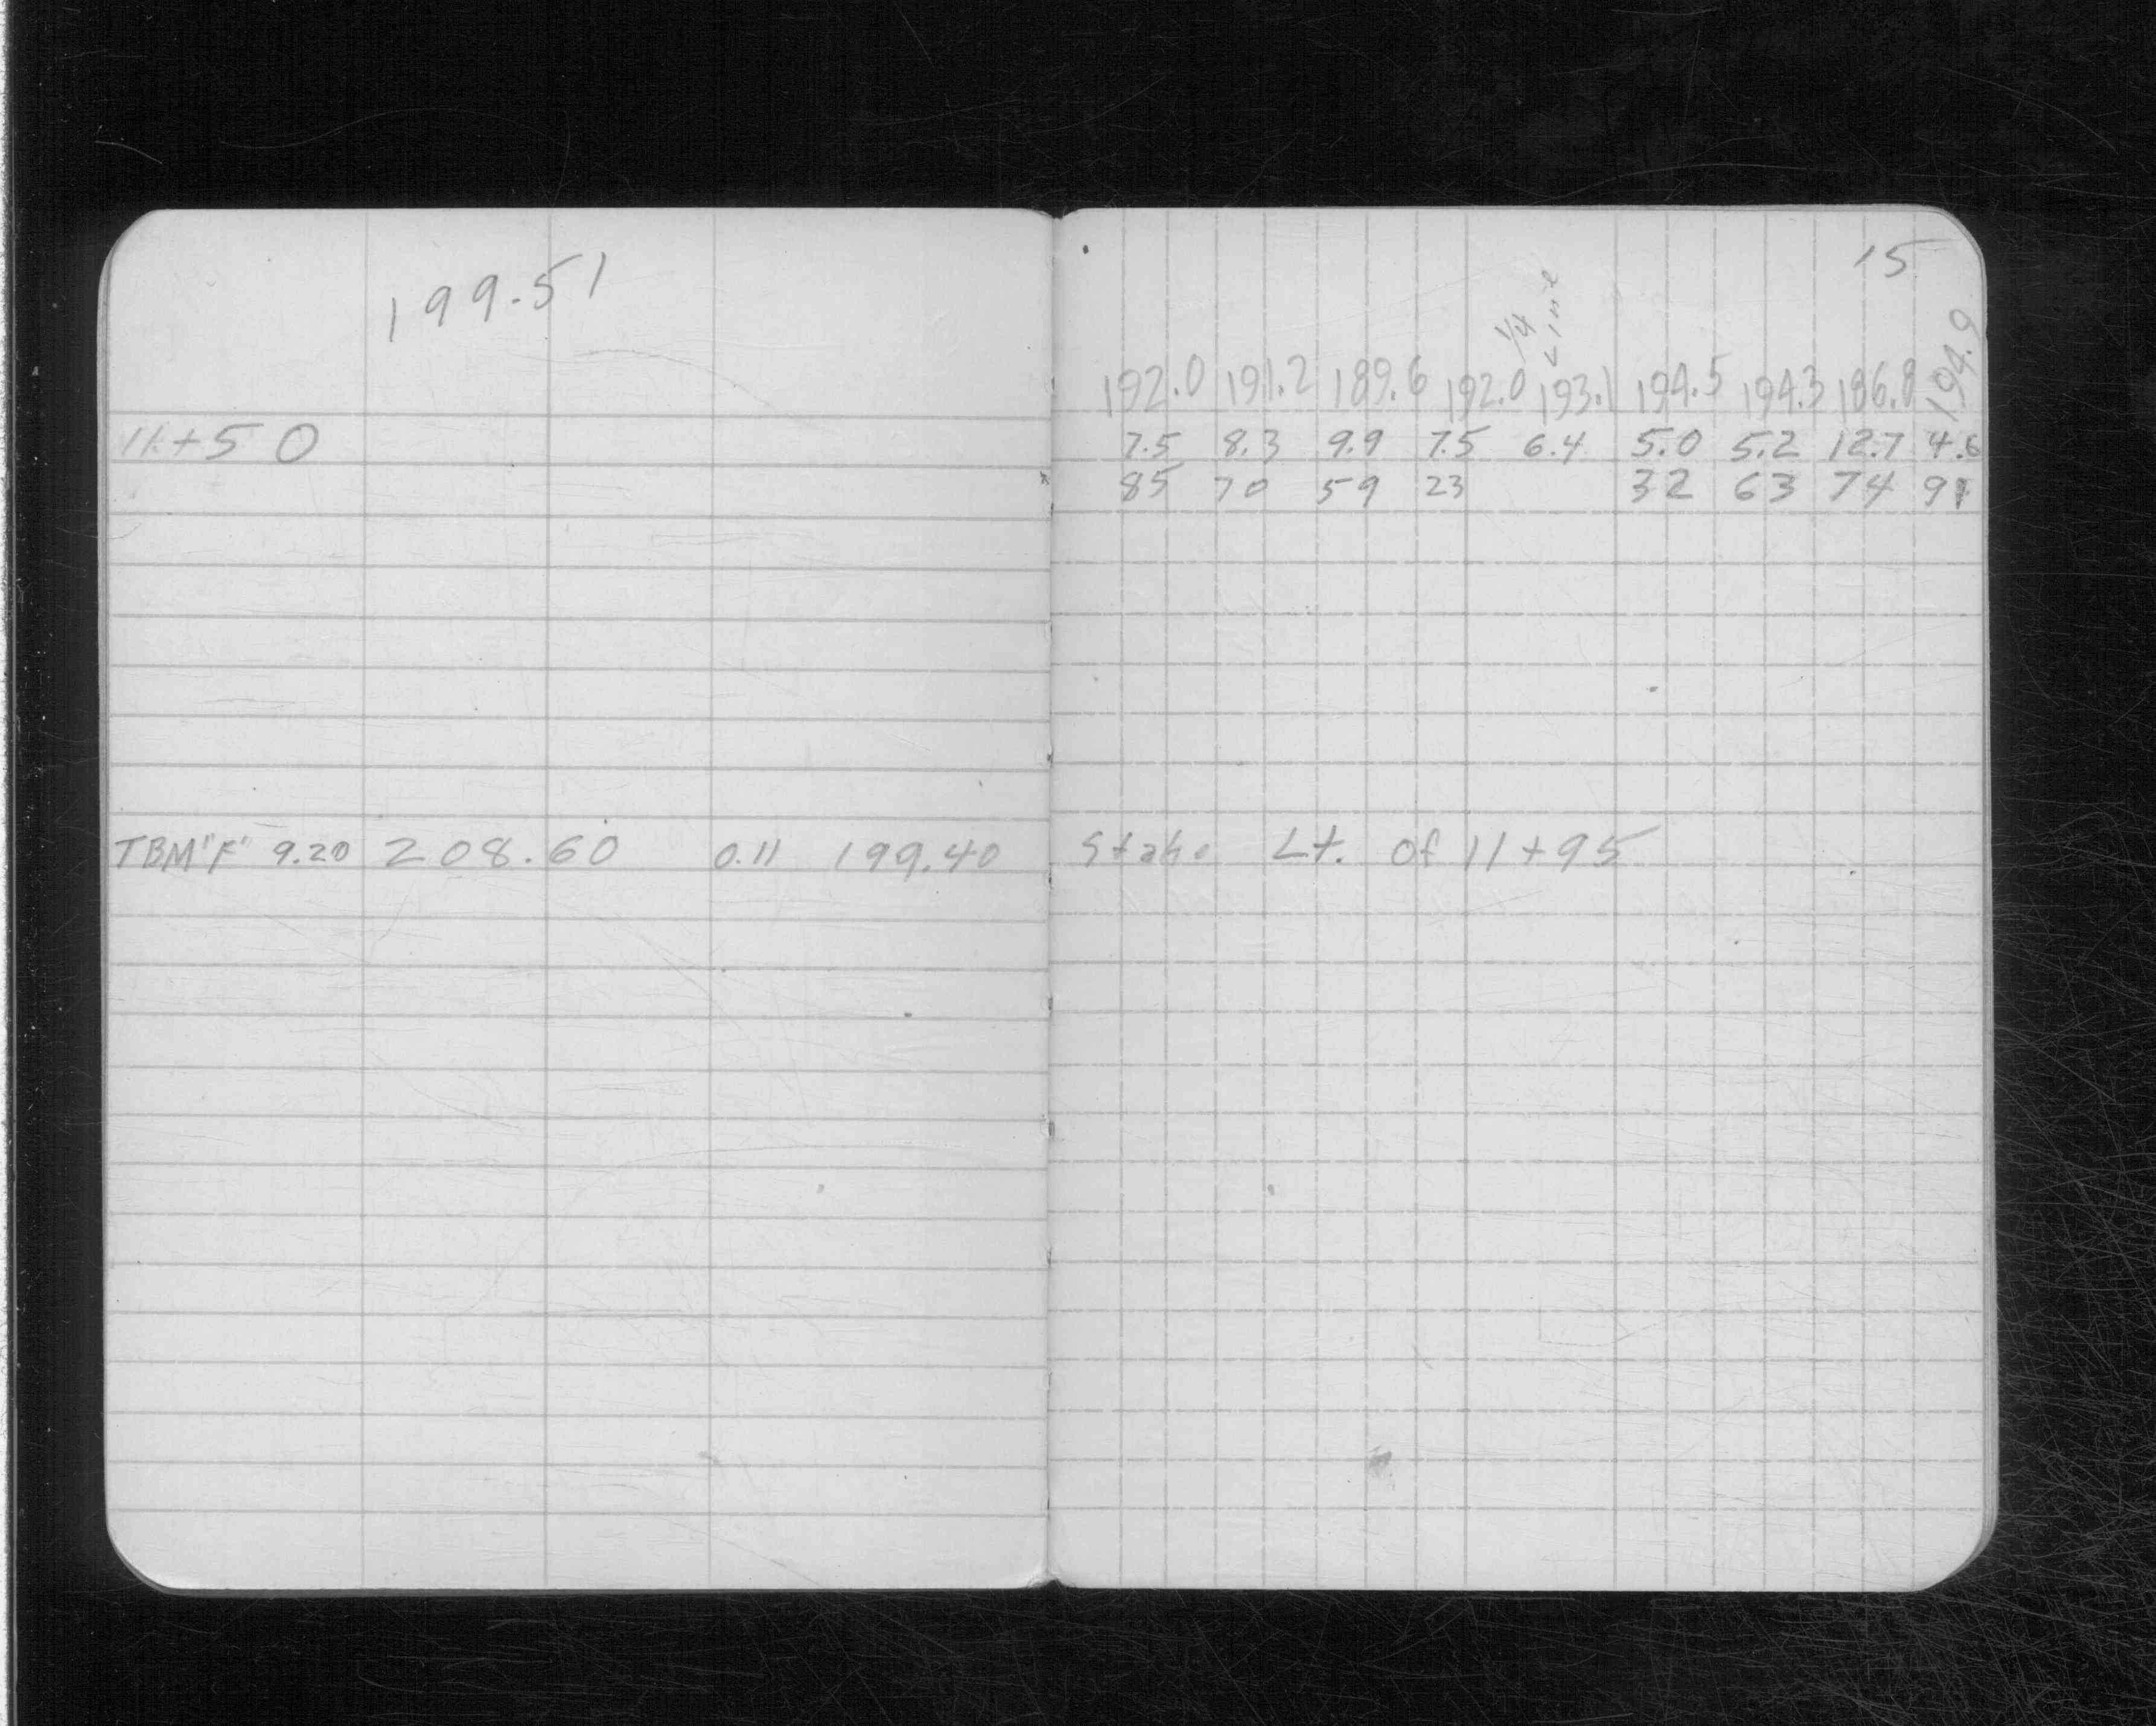 199.51
11+50
TBM "F" 9.20 208.60 0.11 199.40
15
1/4 Line
192.0 191.2 189.6 192.0 193.1 194.5 194.3 186.8 194.9
7.5 8.3 9.9 7.5 6.4 5.0 5.2 12.7 4.6
85 70 59 23 32 63 74 91
Stake Lt. of 11+95